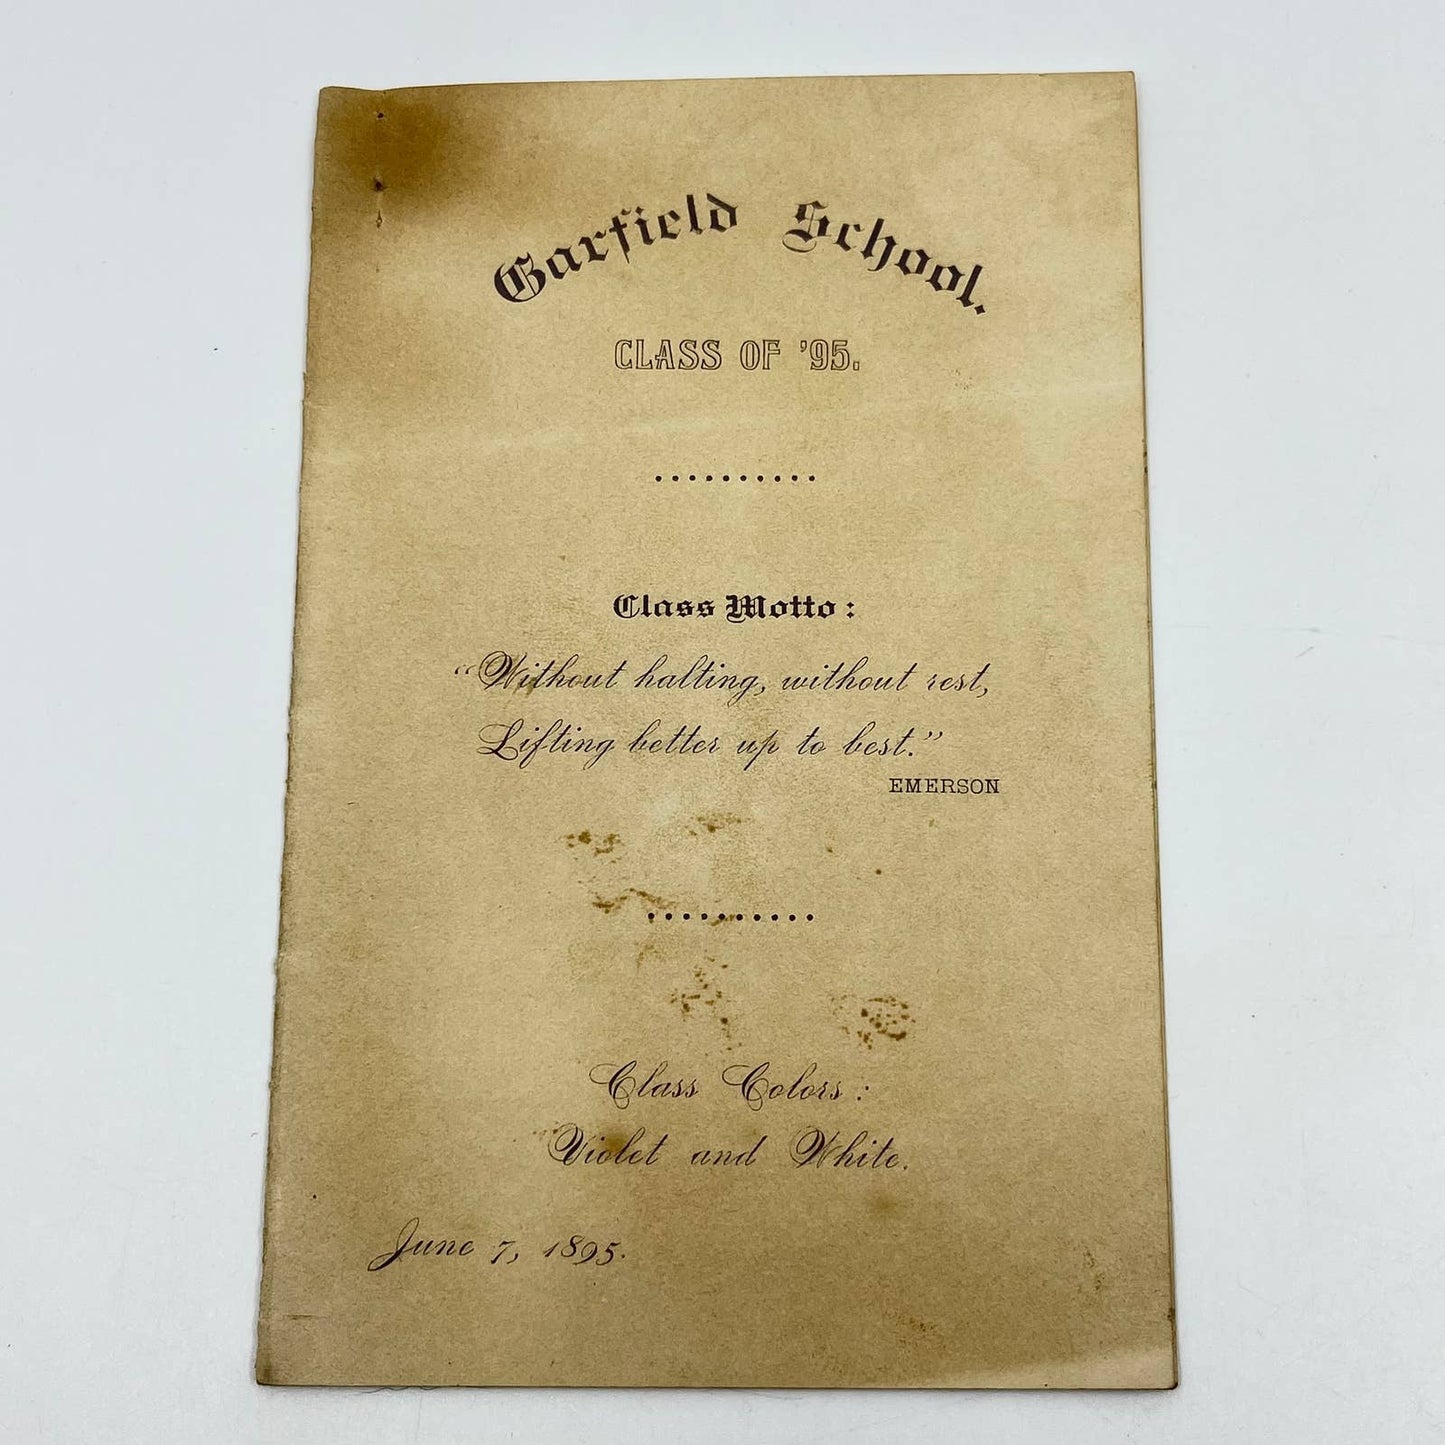 Garfield School.
CLASS OF '95.
Class Motto:
"Without halting, without rest,
Lifting better up to best."
EMERSON
Class Colors:
Violet and White.
June 7, 1895.